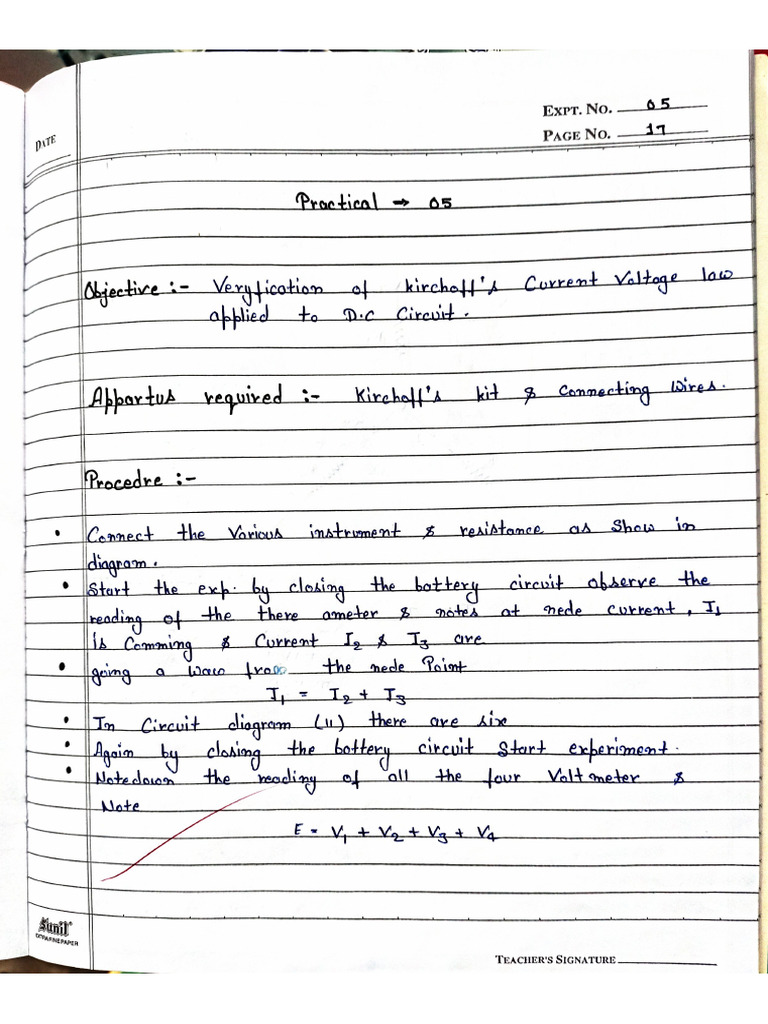 EXPT. NO. 05
DATE
PAGE NO. 17
Practical → 05
Objective :- Veryfication of kirchoff's Current Voltage law
applied to D.C Circuit.
Appartus required :- Kirchoff's kit & Connecting Wires.
Procedre :-
• Connect the Various instrument & resistance as Show in
diagram.
• Start the exp. by closing the battery circuit observe the
reading of the there ameter & notes at nede current, I₁
is Comming & Current I₂ & I₃ are
• going a way from the nede Point
I₁ = I₂ + I₃
• In Circuit diagram (11) there are six
• Again by closing the battery circuit Start experiment.
• Notedown the reading of all the four Volt meter &
Note
E = V₁ + V₂ + V₃ + V₄
Sunil
EXTRAFINEPAPER
TEACHER'S SIGNATURE